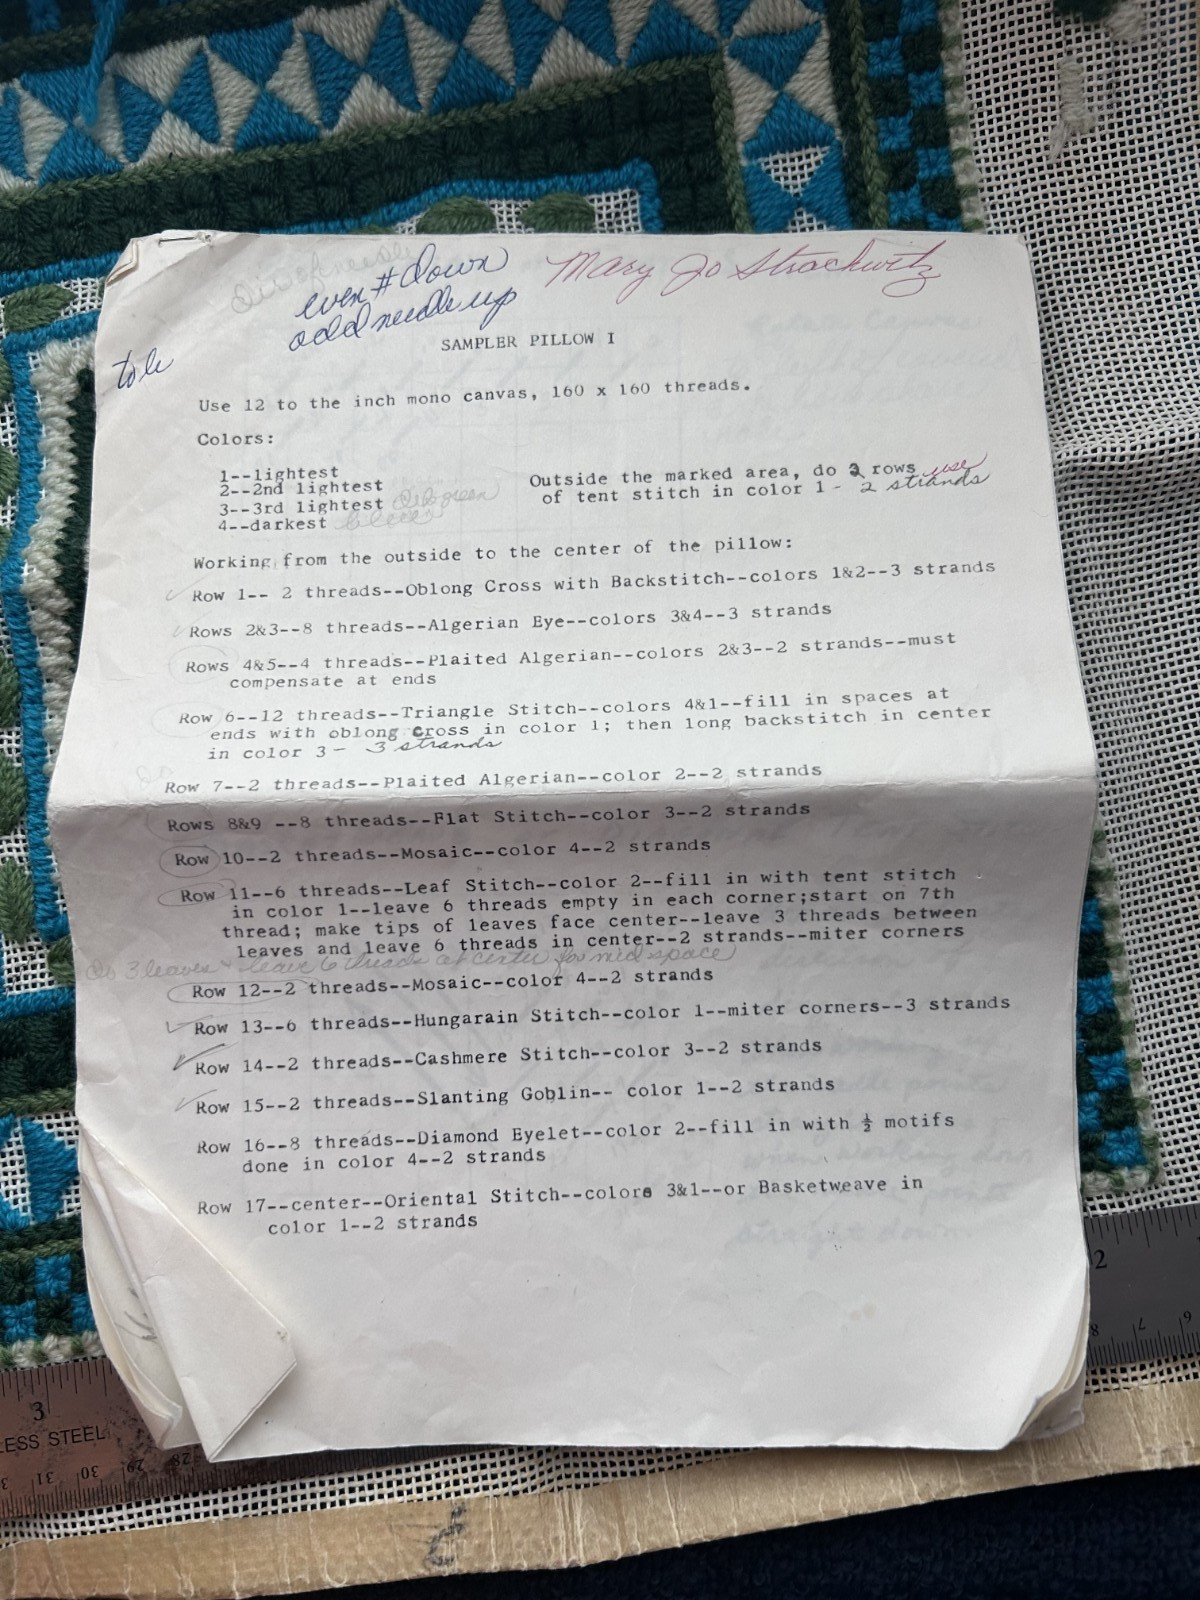 even # down
odd needle up
Mary Jo Strachwitz
SAMPLER PILLOW I
Use 12 to the inch mono canvas, 160 x 160 threads.
Colors:
1--lightest
2--2nd lightest
3--3rd lightest
4--darkest
Outside the marked area, do 2 rows use
of tent stitch in color 1 - 2 strands
Working from the outside to the center of the pillow:
Row 1-- 2 threads--Oblong Cross with Backstitch--colors 1&2--3 strands
Rows 2&3--8 threads--Algerian Eye--colors 3&4--3 strands
Rows 4&5--4 threads--Plaited Algerian--colors 2&3--2 strands--must
compensate at ends
Row 6--12 threads--Triangle Stitch--colors 4&1--fill in spaces at
ends with oblong cross in color 1; then long backstitch in center
in color 3 - 3 strands
Row 7--2 threads--Plaited Algerian--color 2--2 strands
Rows 8&9 --8 threads--Flat Stitch--color 3--2 strands
Row 10--2 threads--Mosaic--color 4--2 strands
Row 11--6 threads--Leaf Stitch--color 2--fill in with tent stitch
in color 1--leave 6 threads empty in each corner;start on 7th
thread; make tips of leaves face center--leave 3 threads between
leaves and leave 6 threads in center--2 strands--miter corners
Do 3 leaves & leave 6 threads at center for mid space
Row 12--2 threads--Mosaic--color 4--2 strands
Row 13--6 threads--Hungarain Stitch--color 1--miter corners--3 strands
Row 14--2 threads--Cashmere Stitch--color 3--2 strands
Row 15--2 threads--Slanting Goblin-- color 1--2 strands
Row 16--8 threads--Diamond Eyelet--color 2--fill in with ½ motifs
done in color 4--2 strands
Row 17--center--Oriental Stitch--colors 3&1--or Basketweave in
color 1--2 strands
2
8 7 6
3
LESS STEEL
31 30 29 28